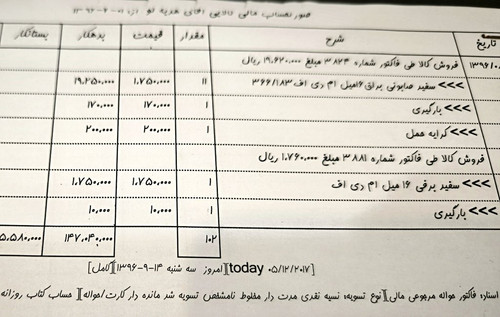 صورتحساب مالی کالایی آقای هدیه لو از: ۰۱-۰۶-۱۳۹۶
تاریخ شرح مقدار قیمت بدهکار بستانکار
۱۳۹۶/۰ فروش کالا طی فاکتور شماره ۳۸۲۴ مبلغ ۱۹،۶۲۰،۰۰۰ ریال
>>> سفید صابونی براق ۱۶میل ام دی اف ۳۶۶/۱۸۳ ۱۱ ۱،۷۵۰،۰۰۰ ۱۹،۲۵۰،۰۰۰
>>> بارگیری ۱ ۱۷۰،۰۰۰ ۱۷۰،۰۰۰
>>> کرایه حمل ۱ ۲۰۰،۰۰۰ ۲۰۰،۰۰۰
فروش کالا طی فاکتور شماره ۳۸۸۱ مبلغ ۱،۷۶۰،۰۰۰ ریال
>>> سفید برفی ۱۶ میل ام دی اف ۱ ۱،۷۵۰،۰۰۰ ۱،۷۵۰،۰۰۰
>>> بارگیری ۱ ۱۰،۰۰۰ ۱۰،۰۰۰
۱۰۲ ۱۴۷،۰۴۰،۰۰۰ ۵،۵۸۰،۰۰۰
[today ۰۵/۱۲/۲۰۱۷][امروز سه شنبه ۱۴-۹-۱۳۹۶][کامل]
اسناد: فاکتور حواله مرجوعی مالی][نوع تسویه: نسیه نقدی مدت دار مخلوط نامشخص تسویه شد مانده دار کارت/حواله][ حساب کتاب روزانه